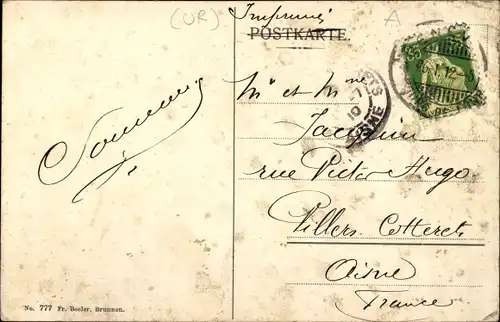 (UR)
Imprimé
A
POSTKARTE.
Mr et Mme
rue Victor Hugo
Villers-Cotterets
Aisne
France
Souvenir
No. 777 Fr. Beeler, Brunnen.